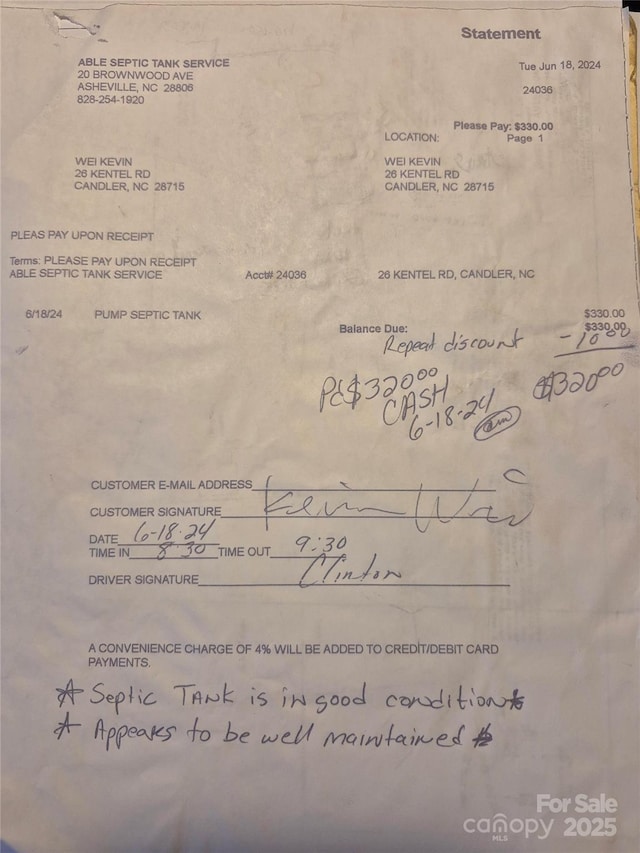 Statement
ABLE SEPTIC TANK SERVICE
20 BROWNWOOD AVE
ASHEVILLE, NC 28806
828-254-1920
Tue Jun 18, 2024
24036
Please Pay: $330.00
LOCATION: Page 1
WEI KEVIN
26 KENTEL RD
CANDLER, NC 28715
WEI KEVIN
26 KENTEL RD
CANDLER, NC 28715
PLEAS PAY UPON RECEIPT
Terms: PLEASE PAY UPON RECEIPT
ABLE SEPTIC TANK SERVICE Acct# 24036 26 KENTEL RD, CANDLER, NC
6/18/24 PUMP SEPTIC TANK $330.00
Balance Due: $330.00
Repeat discount - 10 00
$320 00
Pd $320 00
CASH
6-18-24
CUSTOMER E-MAIL ADDRESS
CUSTOMER SIGNATURE Kevin Wei
DATE 6-18-24
TIME IN 8:30 TIME OUT 9:30
DRIVER SIGNATURE Clinton
A CONVENIENCE CHARGE OF 4% WILL BE ADDED TO CREDIT/DEBIT CARD
PAYMENTS.
Septic TANK is in good condition
Appears to be well maintained
For Sale
canopy MLS 2025